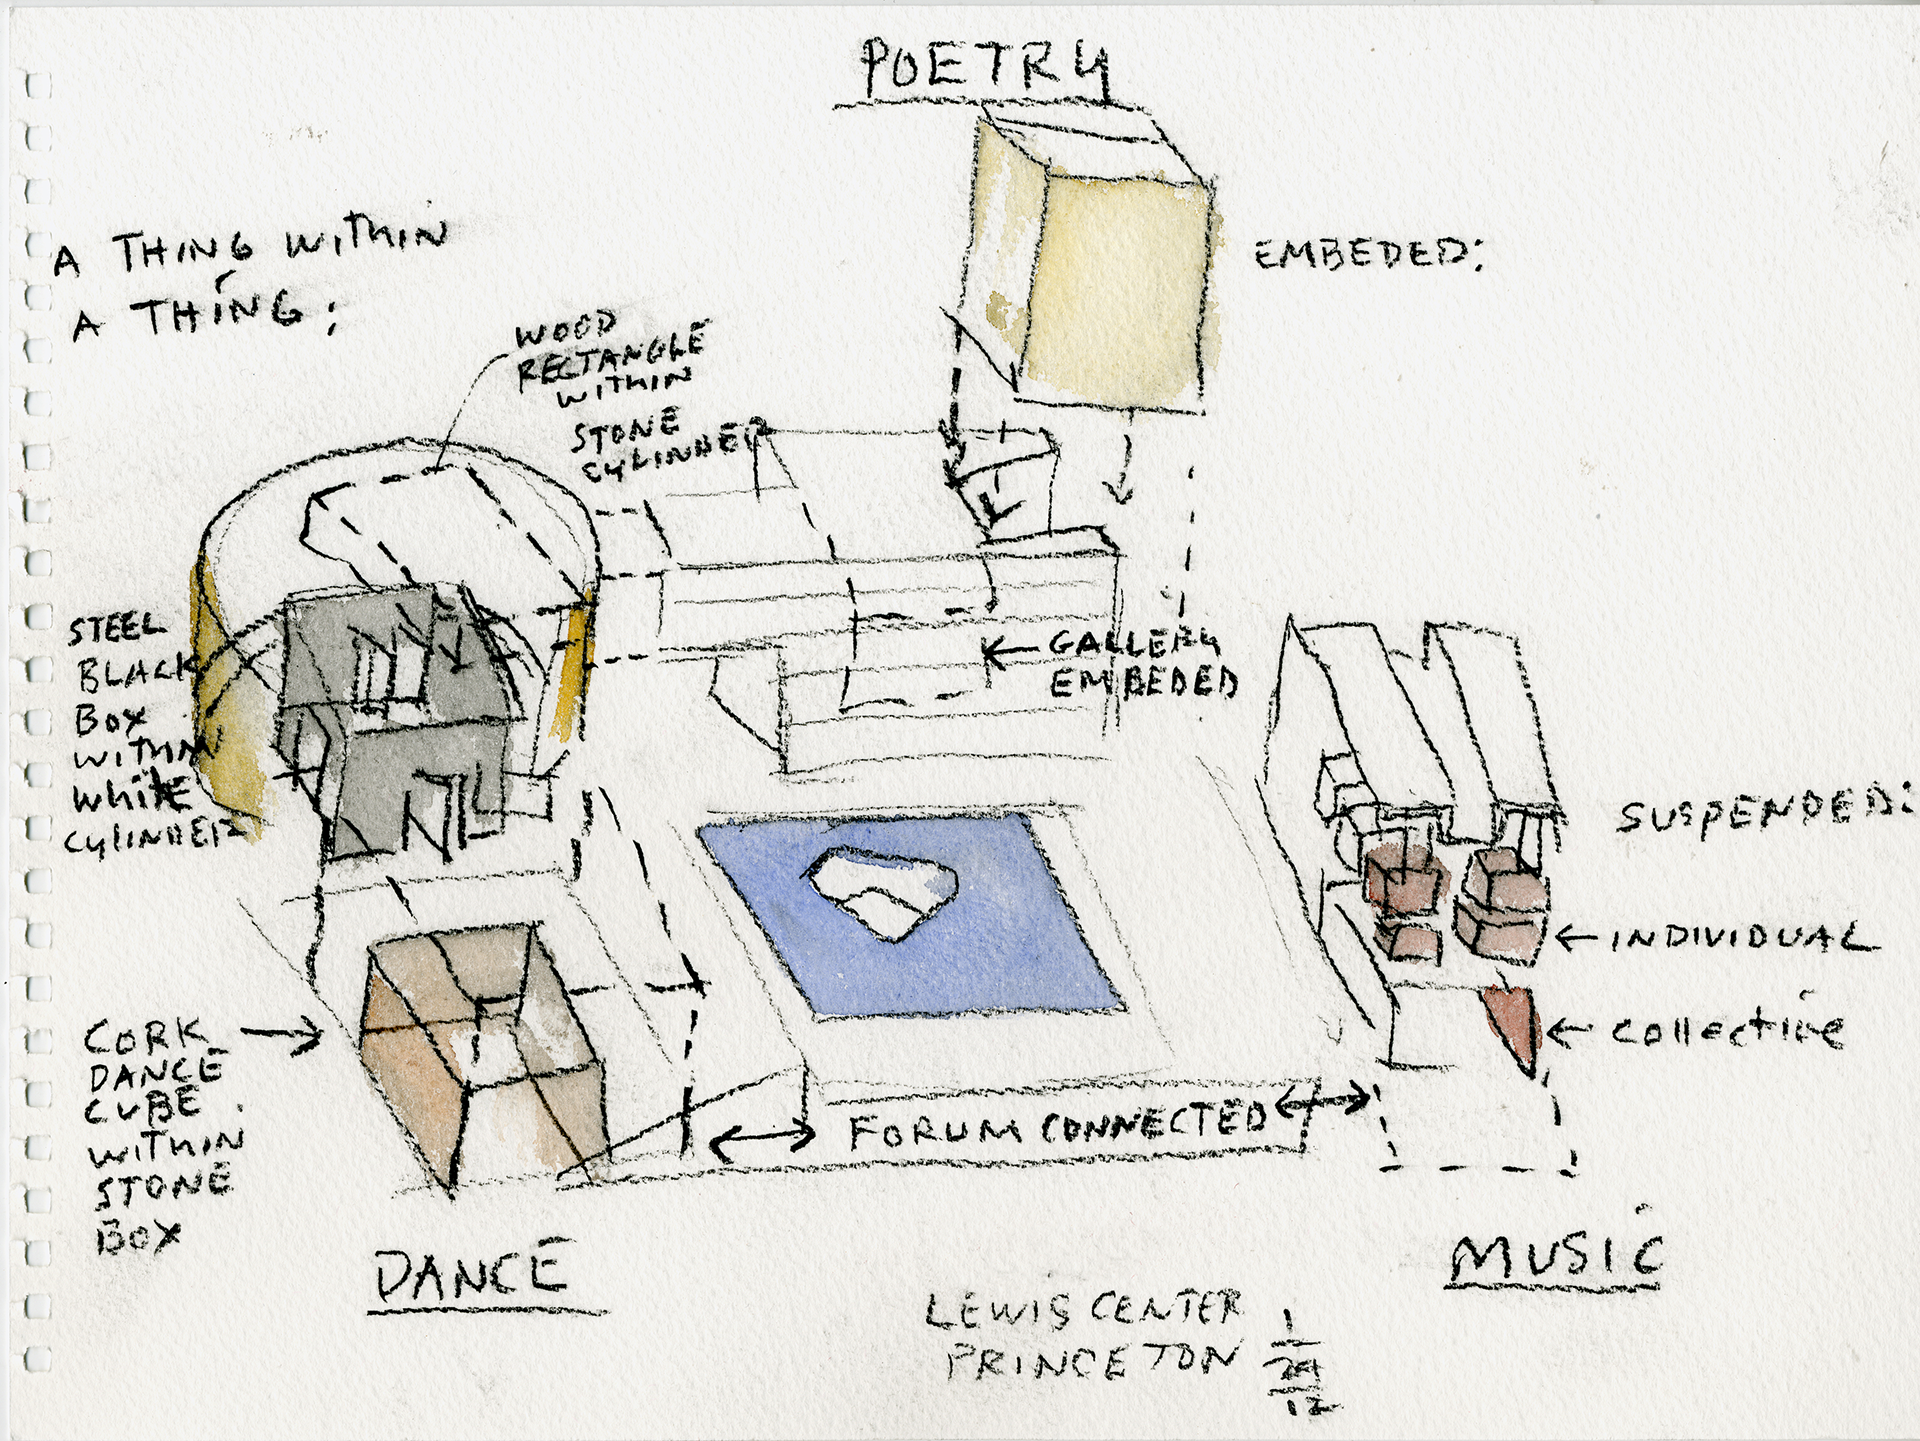 POETRY
A THING WITHIN
A THING:
EMBEDED:
WOOD
RECTANGLE
WITHIN
STONE
CYLINDER
STEEL
BLACK
BOX
WITHIN
WHITE
CYLINDER
GALLERY
EMBEDED
SUSPENDED:
INDIVIDUAL
COLLECTIVE
CORK
DANCE
CUBE
WITHIN
STONE
BOX
FORUM CONNECTED
DANCE
MUSIC
LEWIS CENTER
PRINCETON
1
29
12